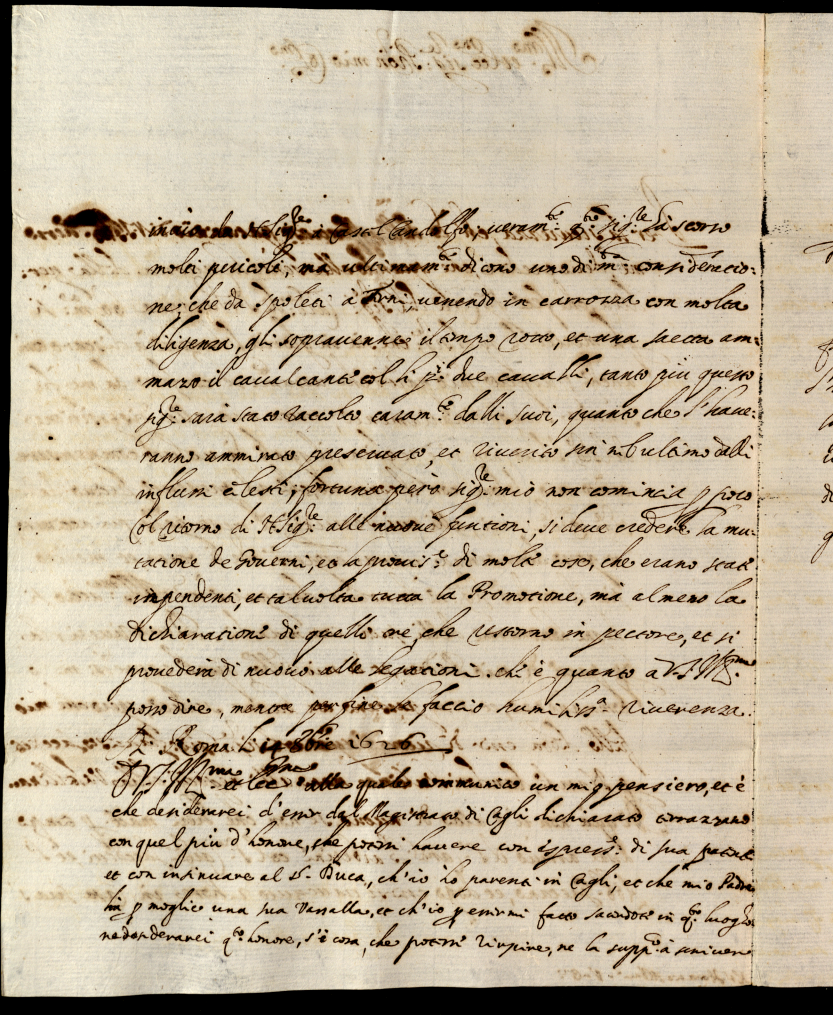 molti pericoli, mà ultimam.te dicono uno di m.ta consideratio:
ne, che da Spoleti à Terni, venendo in carrozza con molta
diligenza, gli sopravenne il tempo rotto, et una saetta am:
mazò il cavalcante col li p.i due cavalli, tanto piu questo
sig.re sarà stato raccolto caram.te dalli suoi, quanto che l'have:
ranno ammirato preservato, et riverito sin nell'ultimo dalli
influssi celesti; fortuna però sig.re mio non comincia p poco
Col ritorno di N. Sig.re alle nuove funtioni, si deve credere la mu:
tatione de Governi, et la provis.e di molte cose, che erano state
impendenti, et talvolta tutta la Promotione, mà almeno la
dichiaratione di quelli tre, che restorno in pectore, et si
provederà di nuovo alle legationi. ch'è quanto a V.S. Ill.ma
posso dire, mentre per fine le faccio humiliss.a riverenza.
Roma li 1626
D V.S. Ill.ma et Ecc.ma alla quale communico un mio pensiero, et è
che desiderarei d'esser dal Magistrato di Cagli dichiarato terrazzano
con quel più d'honore, che potessi havere con espress.e di sua patente
et con insinuare al S.r Duca, ch'io hò parenti in Cagli, et che mio Padre
hà p moglie una sua Vassalla, et ch'io p essermi fatto sacerdote in q.to luogho
ne desiderarei q.to honore, s'è cosa, che potessi riuscire, ne la supp.co à scrivere